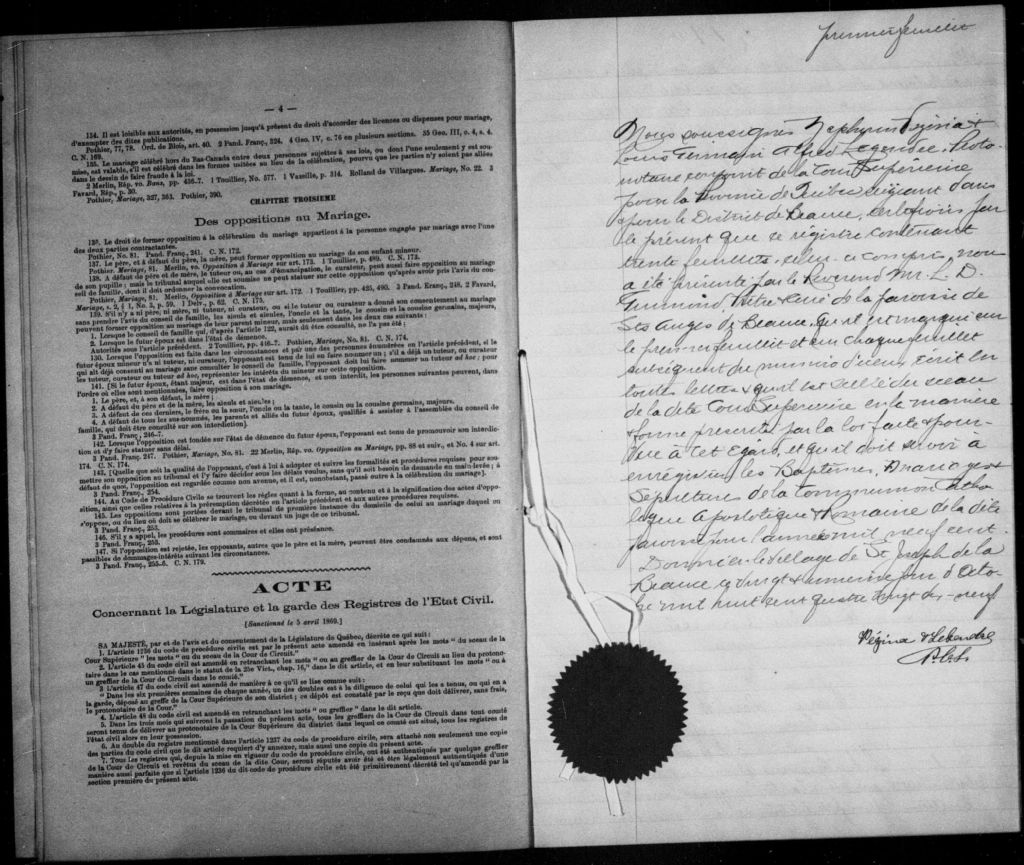 — 4 —
134. Il est loisible aux autorités, en possession jusqu'à présent du droit d'accorder des licences ou dispenses pour mariage,
d'exempter des dites publications.
Pothier, 77, 78. Ord. de Blois, art. 40. 2 Pand. Franç., 324. 4 Geo. IV, c. 76 en plusieurs sections. 35 Geo. III, c. 4, s. 4.
C. N. 169.
135. Le mariage célébré hors du Bas-Canada entre deux personnes sujettes à ses lois, ou dont l'une seulement y est sou-
mise, est valable, s'il est célébré dans les formes usitées au lieu de la célébration, pourvu que les parties n'y soient pas allées
dans le dessein de faire fraude à la loi.
2 Merlin, Rép. vo. Bans, pp. 456-7. 1 Toullier, No. 577. 1 Vazeille, p. 314. Rolland de Villargues. Mariage, No. 22. 3
Favard, Rép., p. 30.
Pothier, Mariage, 327, 363. Pothier, 390.
CHAPITRE TROISIEME
Des oppositions au Mariage.
136. Le droit de former opposition à la célébration du mariage appartient à la personne engagée par mariage avec l'une
des deux parties contractantes.
Pothier, No. 81. Pand. Franç., 241. C. N. 172.
137. Le père, et à défaut du père, la mère, peut former opposition au mariage de son enfant mineur.
Pothier. Mariage, 81. Merlin, vo. Opposition à Mariage sur art. 173. 1 Toullier, p. 489. C. N. 173.
138. A défaut de père et de mère, le tuteur ou, au cas d'émancipation, le curateur, peut aussi faire opposition au mariage
de son pupille; mais le tribunal auquel elle est soumise ne peut statuer sur cette opposition qu'après avoir pris l'avis du con-
seil de famille, dont il doit ordonner la convocation.
Pothier, Mariage, 81. Merlin, Opposition à Mariage sur art. 172. 1 Toullier, pp. 425, 490. 3 Pand. Franç., 248. 2 Favard,
Mariage, s. 2, § 1, No. 5, p. 59. 1 Delv., p. 62. C. N. 175.
139. S'il n'y a ni père, ni mère, ni tuteur, ni curateur, ou si le tuteur ou curateur a donné son consentement au mariage
sans prendre l'avis du conseil de famille, les aïeuls et aïeules, l'oncle et la tante, le cousin et la cousine germains, majeurs,
peuvent former opposition au mariage de leur parent mineur, mais seulement dans les deux cas suivants:
1. Lorsque le conseil de famille qui, d'après l'article 122, aurait dû être consulté, ne l'a pas été;
2. Lorsque le futur époux est dans l'état de démence.
Autorités sous l'article précédent. 2 Toullier, pp. 446-7. Pothier, Mariage, No. 81. C. N. 174.
130. Lorsque l'opposition est faite dans les circonstances et par une des personnes énumérées en l'article précédent, si le
futur époux mineur n'a ni tuteur, ni curateur, l'opposant est tenu de lui en faire nommer un; s'il a déjà un tuteur, ou curateur
qui ait déjà consenti au mariage sans consulter le conseil de famille, l'opposant doit lui faire nommer un tuteur ad hoc: pour
les tuteur, curateur ou tuteur ad hoc, représenter les intérêts du mineur sur cette opposition.
141. [Si le futur époux, étant majeur, est dans l'état de démence, et non interdit, les personnes suivantes peuvent, dans
l'ordre où elles sont mentionnées, faire opposition à son mariage.
1. Le père, et, à son défaut, la mère;
2. A défaut du père et de la mère, les aïeuls et aïeules;
3. A défaut de ces derniers, le frère ou la sœur, l'oncle ou la tante, le cousin ou la cousine germains, majeurs.
4. A défaut de tous les sus-nommés, les parents et alliés du futur époux, qualifiés à assister à l'assemblée du conseil de
famille, qui doit être consulté sur son interdiction].
3 Pand. Franç., 246-7.
142. Lorsque l'opposition est fondée sur l'état de démence du futur époux, l'opposant est tenu de promouvoir son interdic-
tion et d'y faire statuer sans délai.
3 Pand. Franç. 247. Pothier, Mariage, No. 81. 22 Merlin, Rép. vo. Opposition au Mariage, pp. 88 et suiv., et No. 4 sur art.
174. C. N. 174.
143. [Quelle que soit la qualité de l'opposant, c'est à lui à adopter et suivre les formalités et procédures requises pour sou-
mettre son opposition au tribunal et l'y faire décider sous les délais voulus, sans qu'il soit besoin de demande en main-levée; à
défaut de quoi, l'opposition est regardée comme non avenue, et il est, nonobstant, passé outre à la célébration du mariage].
3 Pand. Franç., 254.
144. Au Code de Procédure Civile se trouvent les règles quant à la forme, au contenu et à la signification des actes d'oppo-
sition, ainsi que celles relatives à la péremption décrétée en l'article précédent et aux autres procédures requises.
145. Les oppositions sont portées devant le tribunal de première instance du domicile de celui au mariage duquel on
s'oppose, ou du lieu où doit se célébrer le mariage, ou devant un juge de ce tribunal.
3 Pand. Franç., 253.
146. S'il y a appel, les procédures sont sommaires et elles ont préséance.
3 Pand. Franç., 255.
147. Si l'opposition est rejetée, les opposants, autres que le père et la mère, peuvent être condamnés aux dépens, et sont
passibles de dommages-intérêts suivant les circonstances.
3 Pand. Franç., 255-6. C. N. 179.
ACTE
Concernant la Législature et la garde des Registres de l'Etat Civil.
[Sanctionné le 5 avril 1869.]
SA MAJESTÉ, par et de l'avis et du consentement de la Législature de Québec, décrète ce qui suit:
1. L'article 1236 du code de procédure civile est par le présent acte amendé en insérant après les mots " du sceau de la
Cour Supérieure " les mots " ou du sceau de la Cour de Circuit."
2. L'article 45 du code civil est amendé en retranchant les mots " ou au greffier de la Cour de Circuit au lieu du protono-
taire dans le cas mentionné dans le statut de la 25e Vict., chap. 16," dans le dit article, et en leur substituant les mots " ou à
un greffier de la Cour de Circuit dans le comté."
3 L'article 47 du code civil est amendé de manière à ce qu'il se lise comme suit:
" Dans les six premières semaines de chaque année, un des doubles est à la diligence de celui qui les a tenus, ou qui en a
la garde, déposé au greffe de la Cour Supérieure de son district; ce dépôt est constaté par le reçu que doit délivrer, sans frais,
le protonotaire de la Cour."
4. L'article 48 du code civil est amendé en retranchant les mots " ou greffier " dans le dit article.
5. Dans les trois mois qui suivront la passation du présent acte, tous les greffiers de la Cour de Circuit dans tout comté
seront tenus de délivrer au protonotaire de la Cour Supérieure du district dans lequel ce comté est situé, tous les registres de
l'état civil alors en leur possession.
6. Au double du registre mentionné dans l'article 1237 du code de procédure civile, sera attaché non seulement une copie
des parties du code civil que le dit article requiert d'y annexer, mais aussi une copie du présent acte.
7. Tous les registres qui, depuis la mise en vigueur du code de procédure civile, ont été authentiqués par quelque greffier
de la Cour de Circuit et revêtus du sceau de la dite Cour, seront réputés avoir été et être légalement authentiqués d'une
manière aussi parfaite que si l'article 1236 du dit code de procédure civile eût été primitivement décrété tel qu'amendé par la
section première du présent acte.
premier feuillet
Nous soussignés Zéphyrin Vézina &
Louis Germain Alfred Legendre, Proto-
notaire conjoint de la Cour Supérieure
pour la Province de Québec siégeant dans
& pour le District de Beauce, certifions par
le présent que ce registre contenant
trente feuillets, celui-ci compris, nous
a été présenté par le Révérend M. L. D.
Guimond, Prêtre Curé de la paroisse de
Sts Anges de Beauce, qu'il est marqué sur
le premier feuillet et sur chaque feuillet
subséquent du numéro d'iceux écrit en
toutes lettres & qu'il est scellé du sceau
de la dite Cour Supérieure en la manière
& forme prescrite par la loi faite & pour-
vue à cet égard, et qu'il doit servir à
enregistrer les Baptêmes, Mariages &
Sépultures de la Communion Catho-
lique Apostolique & Romaine de la dite
paroisse pour l'année mil neuf cent.
Donné en le village de St Joseph de la
Beauce ce vingt & unième jour d'Octo-
bre mil huit cent quatre vingt dix-neuf
Vézina & Legendre
P.C.S.